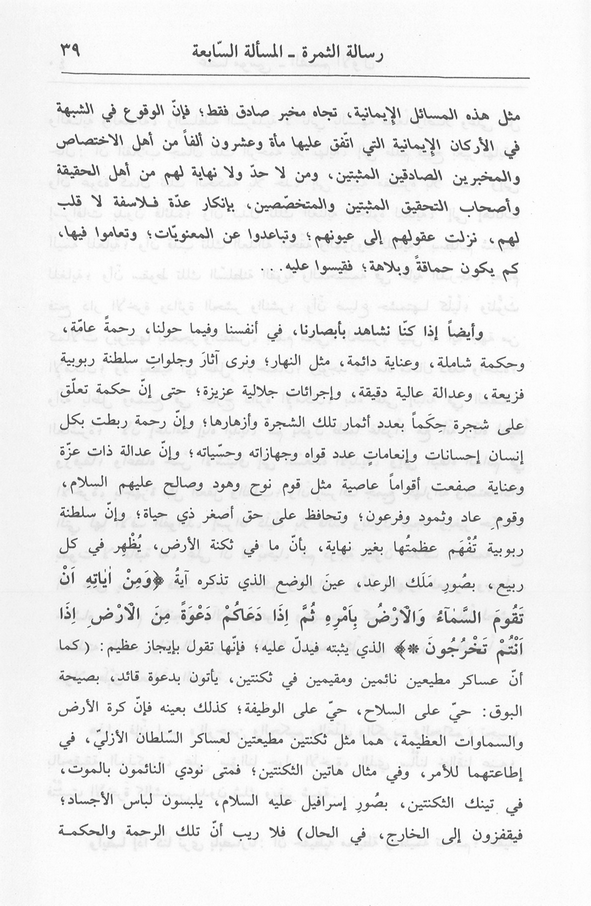 رسالة الثمرة ـ المسألة السّابعة ٣٩
مثل هذه المسائل الإيمانية، تجاه مخبر صادق فقط؛ فإنّ الوقوع في الشبهة
في الأركان الإيمانية التي اتّفق عليها مأة وعشرون ألفاً من أهل الاختصاص
والمخبرين الصادقين المثبتين، ومن لا حدّ ولا نهاية لهم من أهل الحقيقة
وأصحاب التحقيق المثبتين والمتخصّصين، بإنكار عدّة فـلاسفة لا قلب
لهم، نزلت عقولهم إلى عيونهم؛ وتباعدوا عن المعنويّات؛ وتعاموا فيها،
كم يكون حماقةً وبلاهة؛ فقيسوا عليه...
وأيضاً إذا كنّا نشاهد بأبصارنا، في أنفسنا وفيما حولنا، رحمةً عامّة،
وحكمة شاملة، وعناية دائمة، مثل النهار؛ ونرى آثارَ وجلواتِ سلطنة ربوبية
فزيعة، وعدالة عالية دقيقة، وإجرائات جلالية عزيزة؛ حتى إنّ حكمة تعلّق
على شجرة حِكَماً بعدد أثمار تلك الشجرة وأزهارها؛ وإنّ رحمة ربطت بكل
إنسان إحسانات وإنعاماتٍ عدد قواه وجهازاته وحسّياته؛ وإنّ عدالة ذات عزّة
وعناية صفعت أقواماً عاصية مثل قوم نوح وهود وصالح عليهم السلام،
وقوم عاد وثمود وفرعون؛ وتحافظ على حق أصغر ذي حياة؛ وإنّ سلطنة
ربوبية تُفْهَم عظمتُها بغير نهاية، بأنّ ما في ثكنة الأرض، يُظْهر في كل
ربيع، بصُورِ مَلَك الرعد، عينَ الوضع الذي تذكره آيةُ ﴿وَمِنْ اٰيَاتِهِ اَنْ
تَقُومَ السَّمَٓاءُ وَالْاَرْضُ بِاَمْرِهِ ثُمَّ اِذَا دَعَاكُمْ دَعْوَةً مِنَ الْاَرْضِ اِذَٓا
اَنْتُمْ تَخْرُجُونَ *﴾ الذي يثبته فيدلّ عليه؛ فإنّها تقول بإيجاز عظيم: (كما
أنّ عساكر مطيعين نائمين ومقيمين في ثكنتين، يأتون بدعوة قائد، بصيحة
البوق: حيّ على السلاح، حيّ على الوظيفة؛ كذلك بعينه فإنّ كرة الأرض
والسماوات العظيمة، هما مثل ثكنتين مطيعتين لعساكر السّلطان الأزليّ، في
إطاعتهما للأمر، وفي مثال هاتين الثكنتين؛ فمتى نودي النائمون بالموت،
في تينك الثكنتين، بصُورِ إسرافيل عليه السلام، يلبسون لباس الأجساد؛
فيقفزون إلى الخارج، في الحال) فلا ريب أنّ تلك الرحمة والحكمـة